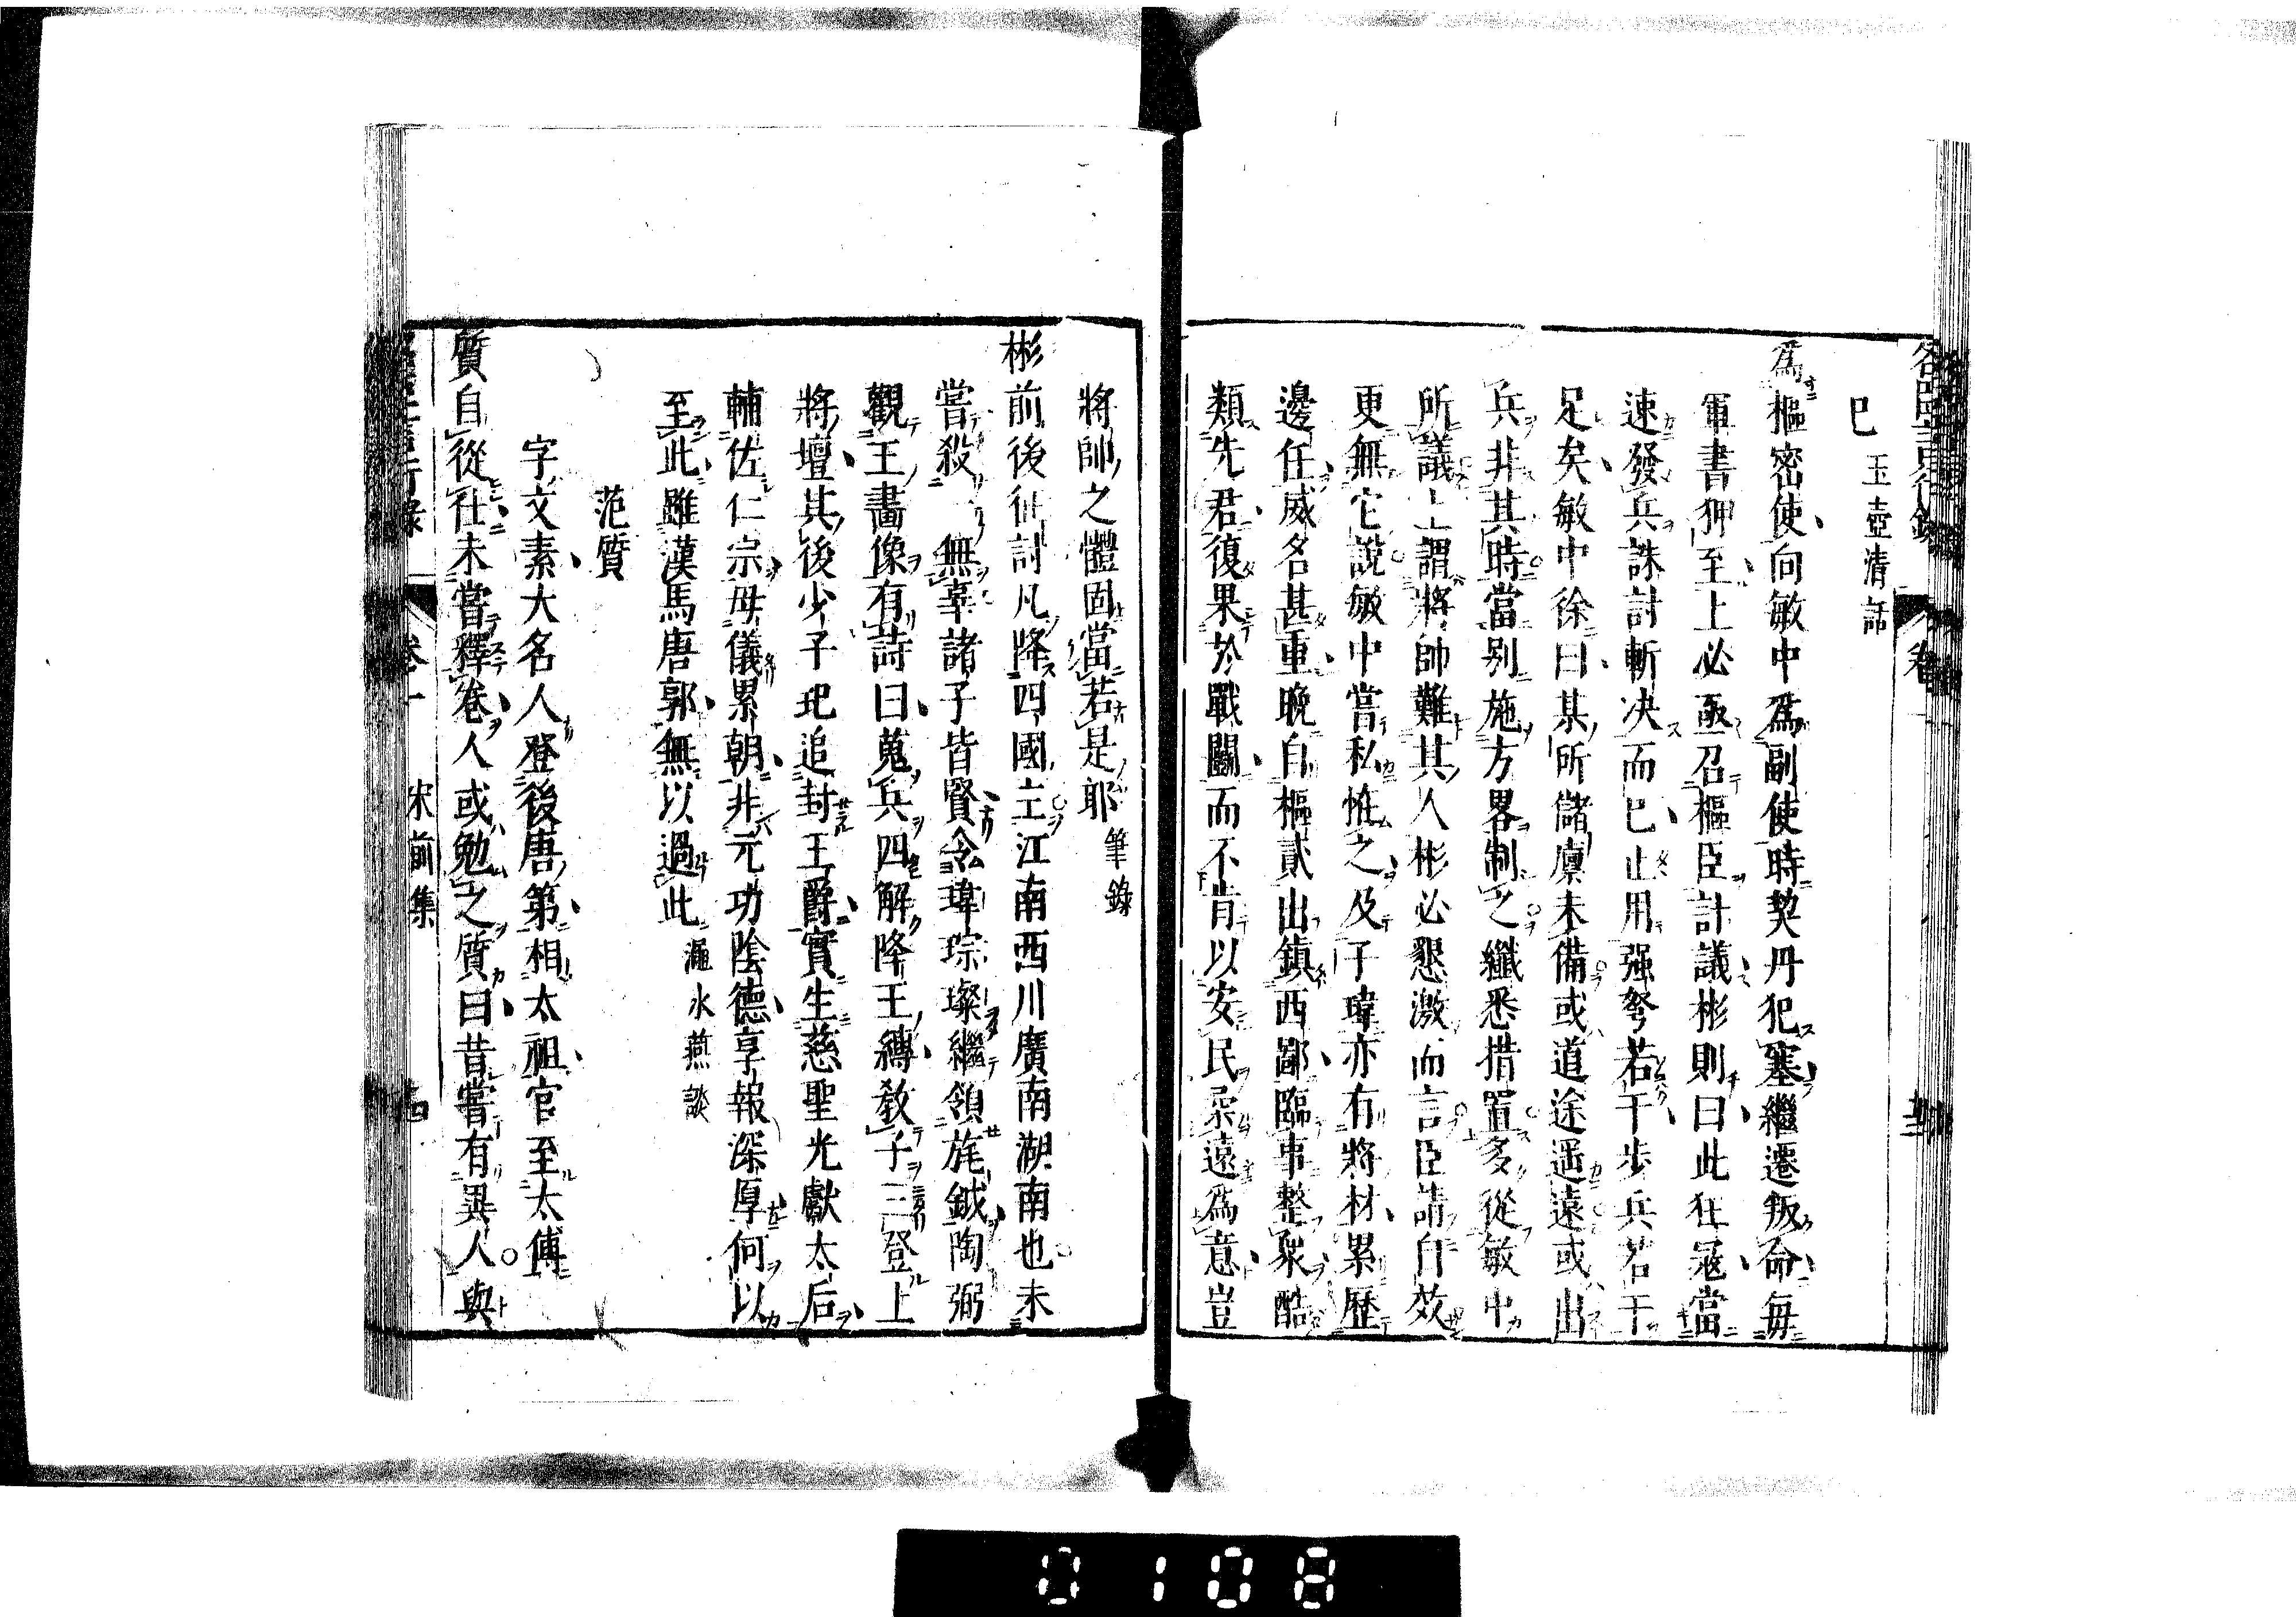 巳 玉壺清話
爲樞密使向敏中爲副使時契丹犯塞繼遷叛命毎
軍書狎至上必亟召樞臣計議彬則曰此狂寇當
速發兵誅討斬决而已止用强弩若干步兵若干
足矣敏中徐曰某所儲廪未備或道途遥遠或出
兵非其時當别施方畧制之纖悉措置多從敏中
所議上謂將帥難其人彬必懇激而言臣請自效
更無它說敏中嘗私怪之及子瑋亦有將材累歷
邊任威名甚重晚自樞貳出鎮西鄙臨事整衆酷
類先君復果於戰鬭而不肯以安民柔遠爲意豈
將帥之體固當若是耶 筆錄
彬前後征討凡降四國主江南西川廣南湖南也未
嘗殺一無辜諸子皆賢令瑋琮璨繼領旄鉞陶弼
觀王畫像有詩曰蒐兵四解降王縛教子三登上
將壇其後少子玘追封王爵實生慈聖光獻太后
輔佐仁宗母儀累朝非元功陰德享報深厚何以
至此雖漢馬唐郭無以過此 澠水燕談
范質
字文素大名人登後唐第相太祖官至太傅
質自從仕未嘗釋卷人或勉之質曰昔嘗有異人與
言行錄 卷一 宋前集 十四
0108